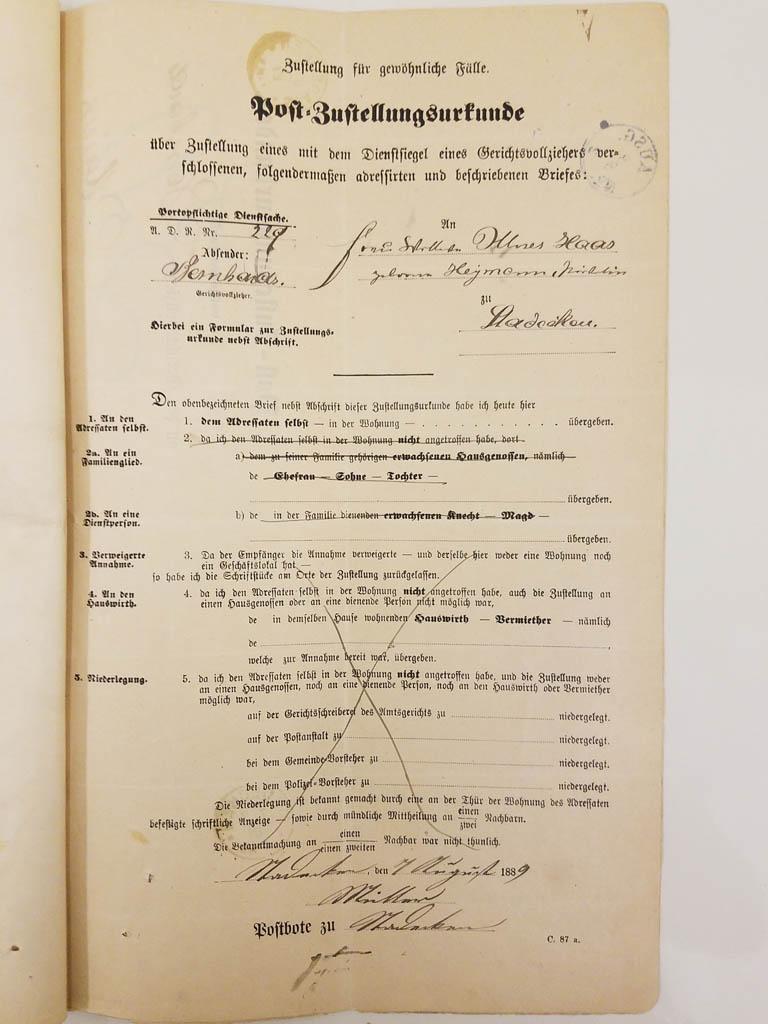 Zustellung für gewöhnliche Fälle.
Post-Zustellungsurkunde
über Zustellung eines mit dem Dienstsiegel eines Gerichtsvollziehers ver-
schlossenen, folgendermaßen adressirten und beschriebenen Briefes:
Portopflichtige Dienstsache.
A. D. R. Nr. 229
Absender:
Bernhards.
Gerichtsvollzieher.
Hierbei ein Formular zur Zustellungs-
urkunde nebst Abschrift.
An
Haas
geborene Heymann
zu
Stadecken.
Den obenbezeichneten Brief nebst Abschrift dieser Zustellungsurkunde habe ich heute hier
1. An den
Adressaten selbst.
1. dem Adressaten selbst — in der Wohnung — übergeben.
2. da ich den Adressaten selbst in der Wohnung nicht angetroffen habe, dort
2a. An ein
Familienglied.
a) dem zu seiner Familie gehörigen erwachsenen Hausgenossen, nämlich
de Ehefrau — Sohne — Tochter —
übergeben.
2b. An eine
Dienstperson.
b) de in der Familie dienenden erwachsenen Knecht — Magd —
übergeben.
3. Verweigerte
Annahme.
3. Da der Empfänger die Annahme verweigerte — und derselbe hier weder eine Wohnung noch
ein Geschäftslokal hat —
so habe ich die Schriftstücke am Orte der Zustellung zurückgelassen.
4. An den
Hauswirth.
4. da ich den Adressaten selbst in der Wohnung nicht angetroffen habe, auch die Zustellung an
einen Hausgenossen oder an eine dienende Person nicht möglich war,
de in demselben Hause wohnenden Hauswirth — Vermiether — nämlich
de
welche zur Annahme bereit war, übergeben.
5. Niederlegung.
5. da ich den Adressaten selbst in der Wohnung nicht angetroffen habe, und die Zustellung weder
an einen Hausgenossen, noch an eine dienende Person, noch an den Hauswirth oder Vermiether
möglich war,
auf der Gerichtsschreiberei des Amtsgerichts zu niedergelegt.
auf der Postanstalt zu niedergelegt.
bei dem Gemeinde-Vorsteher zu niedergelegt.
bei dem Polizei-Vorsteher zu niedergelegt.
Die Niederlegung ist bekannt gemacht durch eine an der Thür der Wohnung des Adressaten
befestigte schriftliche Anzeige — sowie durch mündliche Mittheilung an einen zwei Nachbarn.
Die Bekanntmachung an einen einen zweiten Nachbar war nicht thunlich.
Stadecken, den 7 August 1889
Müller
Postbote zu Stadecken
C. 87 a.